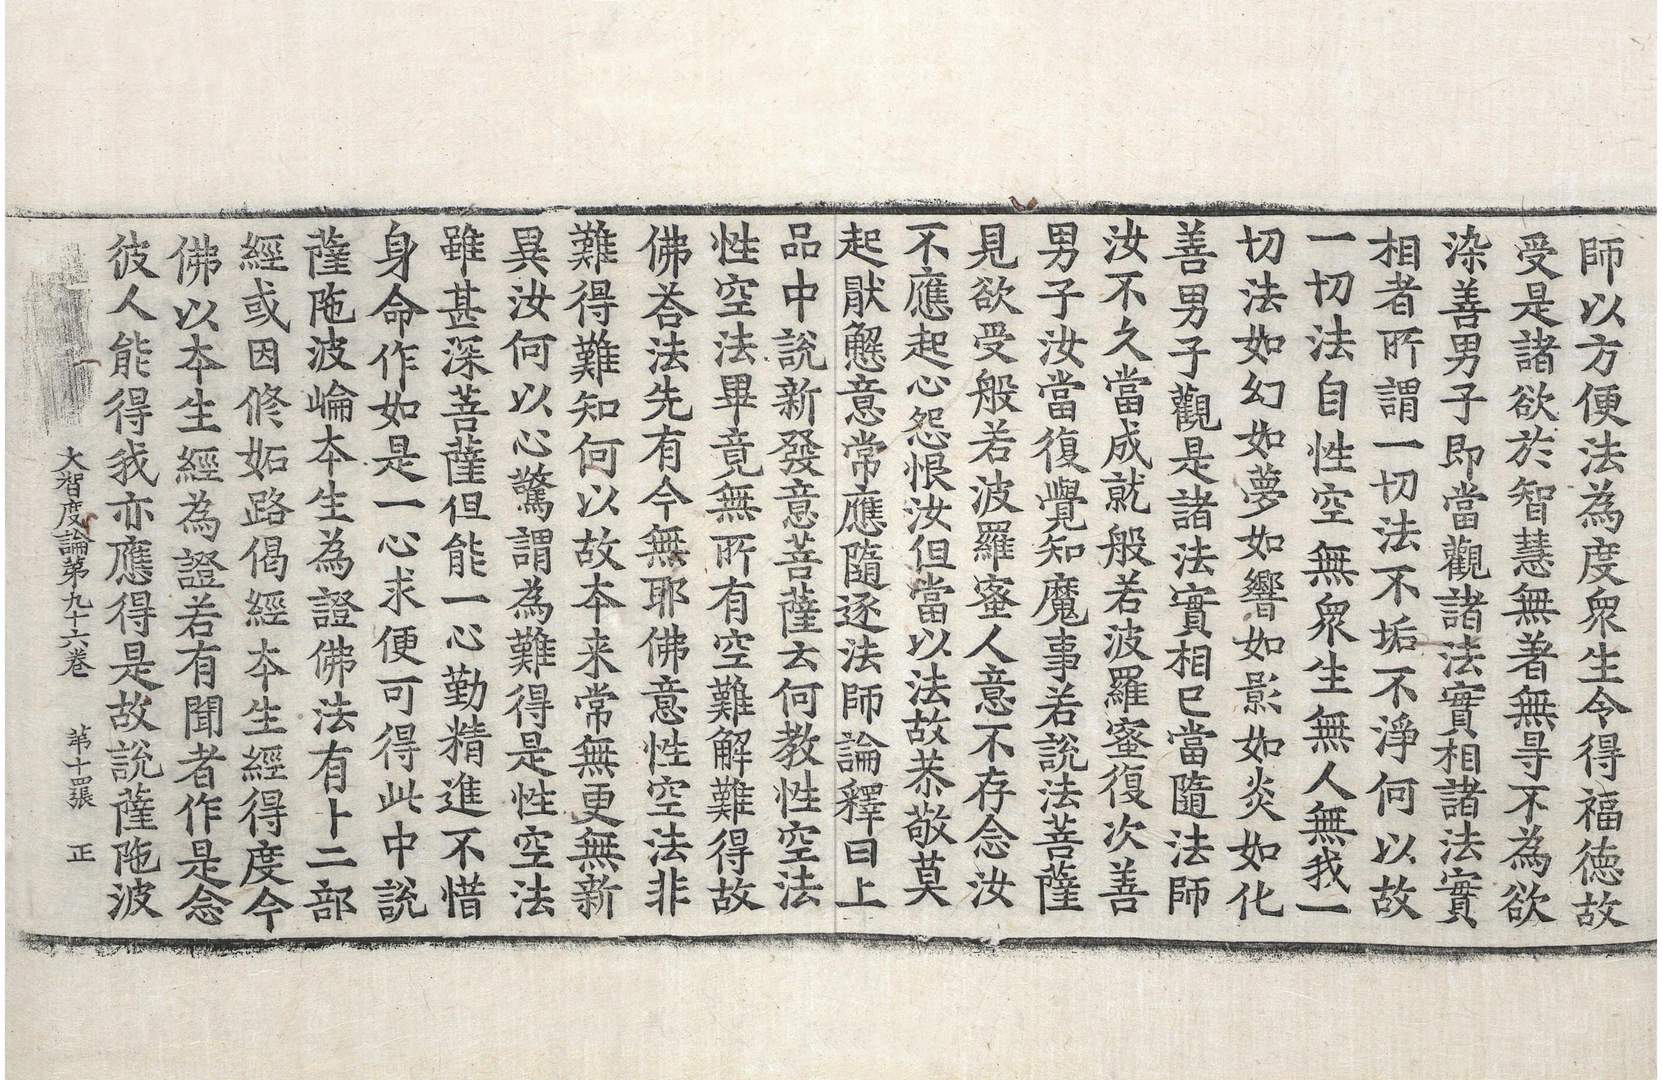 師以方便法為度衆生令得福德故
受是諸欲於智慧無著無㝵不為欲
染善男子即當觀諸法實相諸法實
相者所謂一切法不垢不淨何以故
一切法自性空無衆生無人無我一
切法如幻如夢如響如影如炎如化
善男子觀是諸法實相已當隨法師
汝不久當成就般若波羅蜜復次善
男子汝當復覺知魔事若說法菩薩
見欲受般若波羅蜜人意不存念汝
不應起心怨恨汝但當以法故恭敬莫
起猒懈意常應隨逐法師論釋曰上
品中說新發意菩薩云何教性空法
性空法畢竟無所有空難解難得故
佛荅法先有今無耶佛意性空法非
難得難知何以故本来常無更無新
異汝何以心驚謂為難得是性空法
雖甚深菩薩但能一心勤精進不惜
身命作如是一心求便可得此中說
薩陁波崘本生為證佛法有卜二部
經或因修妬路偈經本生經得度今
佛以本生經為證若有聞者作是念
彼人能得我亦應得是故說薩陁波
大智度論第九十六卷 苐十四張 正